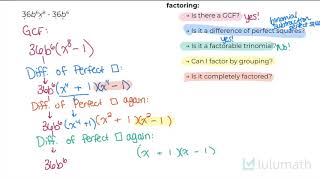 36b⁶x⁸ - 36b⁶
GCF:
36b⁶(x⁸-1)
Diff. of Perfect □:
36b⁶(x⁴+1)(x⁴-1)
Diff of Perfect □ again:
36b⁶(x⁴+1)(x²+1)(x²-1)
Diff of Perfect □ again:
36b⁶ (x+1)(x-1)
factoring:
→ Is there a GCF? yes!
→ Is it a difference of perfect squares?
yes!
binomial
subtraction
perfect squares
→ Is it a factorable trinomial
→ Can I factor by grouping?
→ Is it completely factored?
lulumath